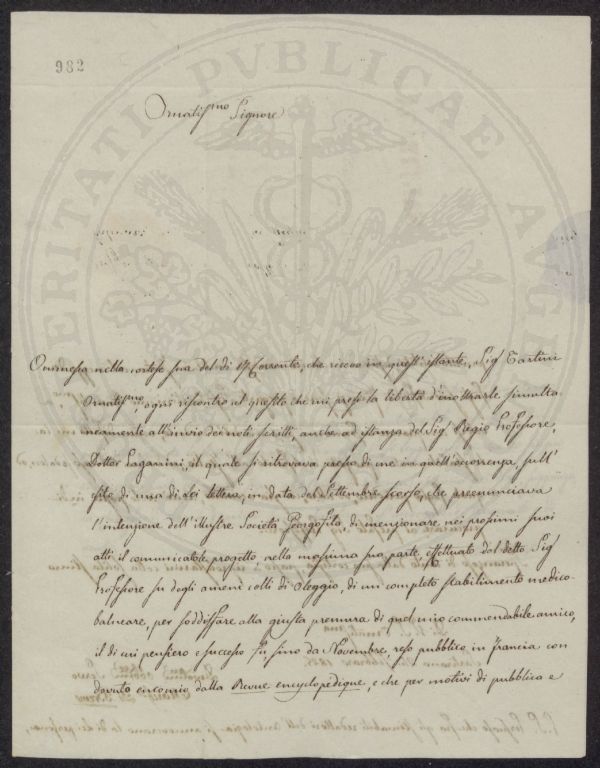 982
PVBLICAE
VERITATI
AVGE
Ornatiss.mo Signore
Ommessa nella cortese sua del dì 17 Corrente, che ricevo in quest'istante, Sig. Tartini
Ornatiss.mo, ogni riscontro al quesito che mi presi la libertà d'inoltrarle simulta-
neamente all'invio dei noti scritti, anche ad istanza del Sig. Regio Professore,
Dottor Paganini, il quale si ritrovava presso di me in quell'occorrenza, sull'
esito di una di lei lettera, in data del Settembre scorso, che preannunciava
l'intenzione dell'illustre Società Georgofila di menzionare, nei prossimi suoi
atti il comunicatole progetto, nella massima sua parte, effettuato dal detto Sig.
Professore su degli ameni colli di Oleggio, di un completo stabilimento medico-
balneare, per soddisfare alla giusta premura di quel mio commendabile amico,
il di cui pensiero e successo fu, sino da Novembre, reso pubblico in Francia con
dovuto encomio dalla Revue encyclopedique, e che per motivi di pubblica e